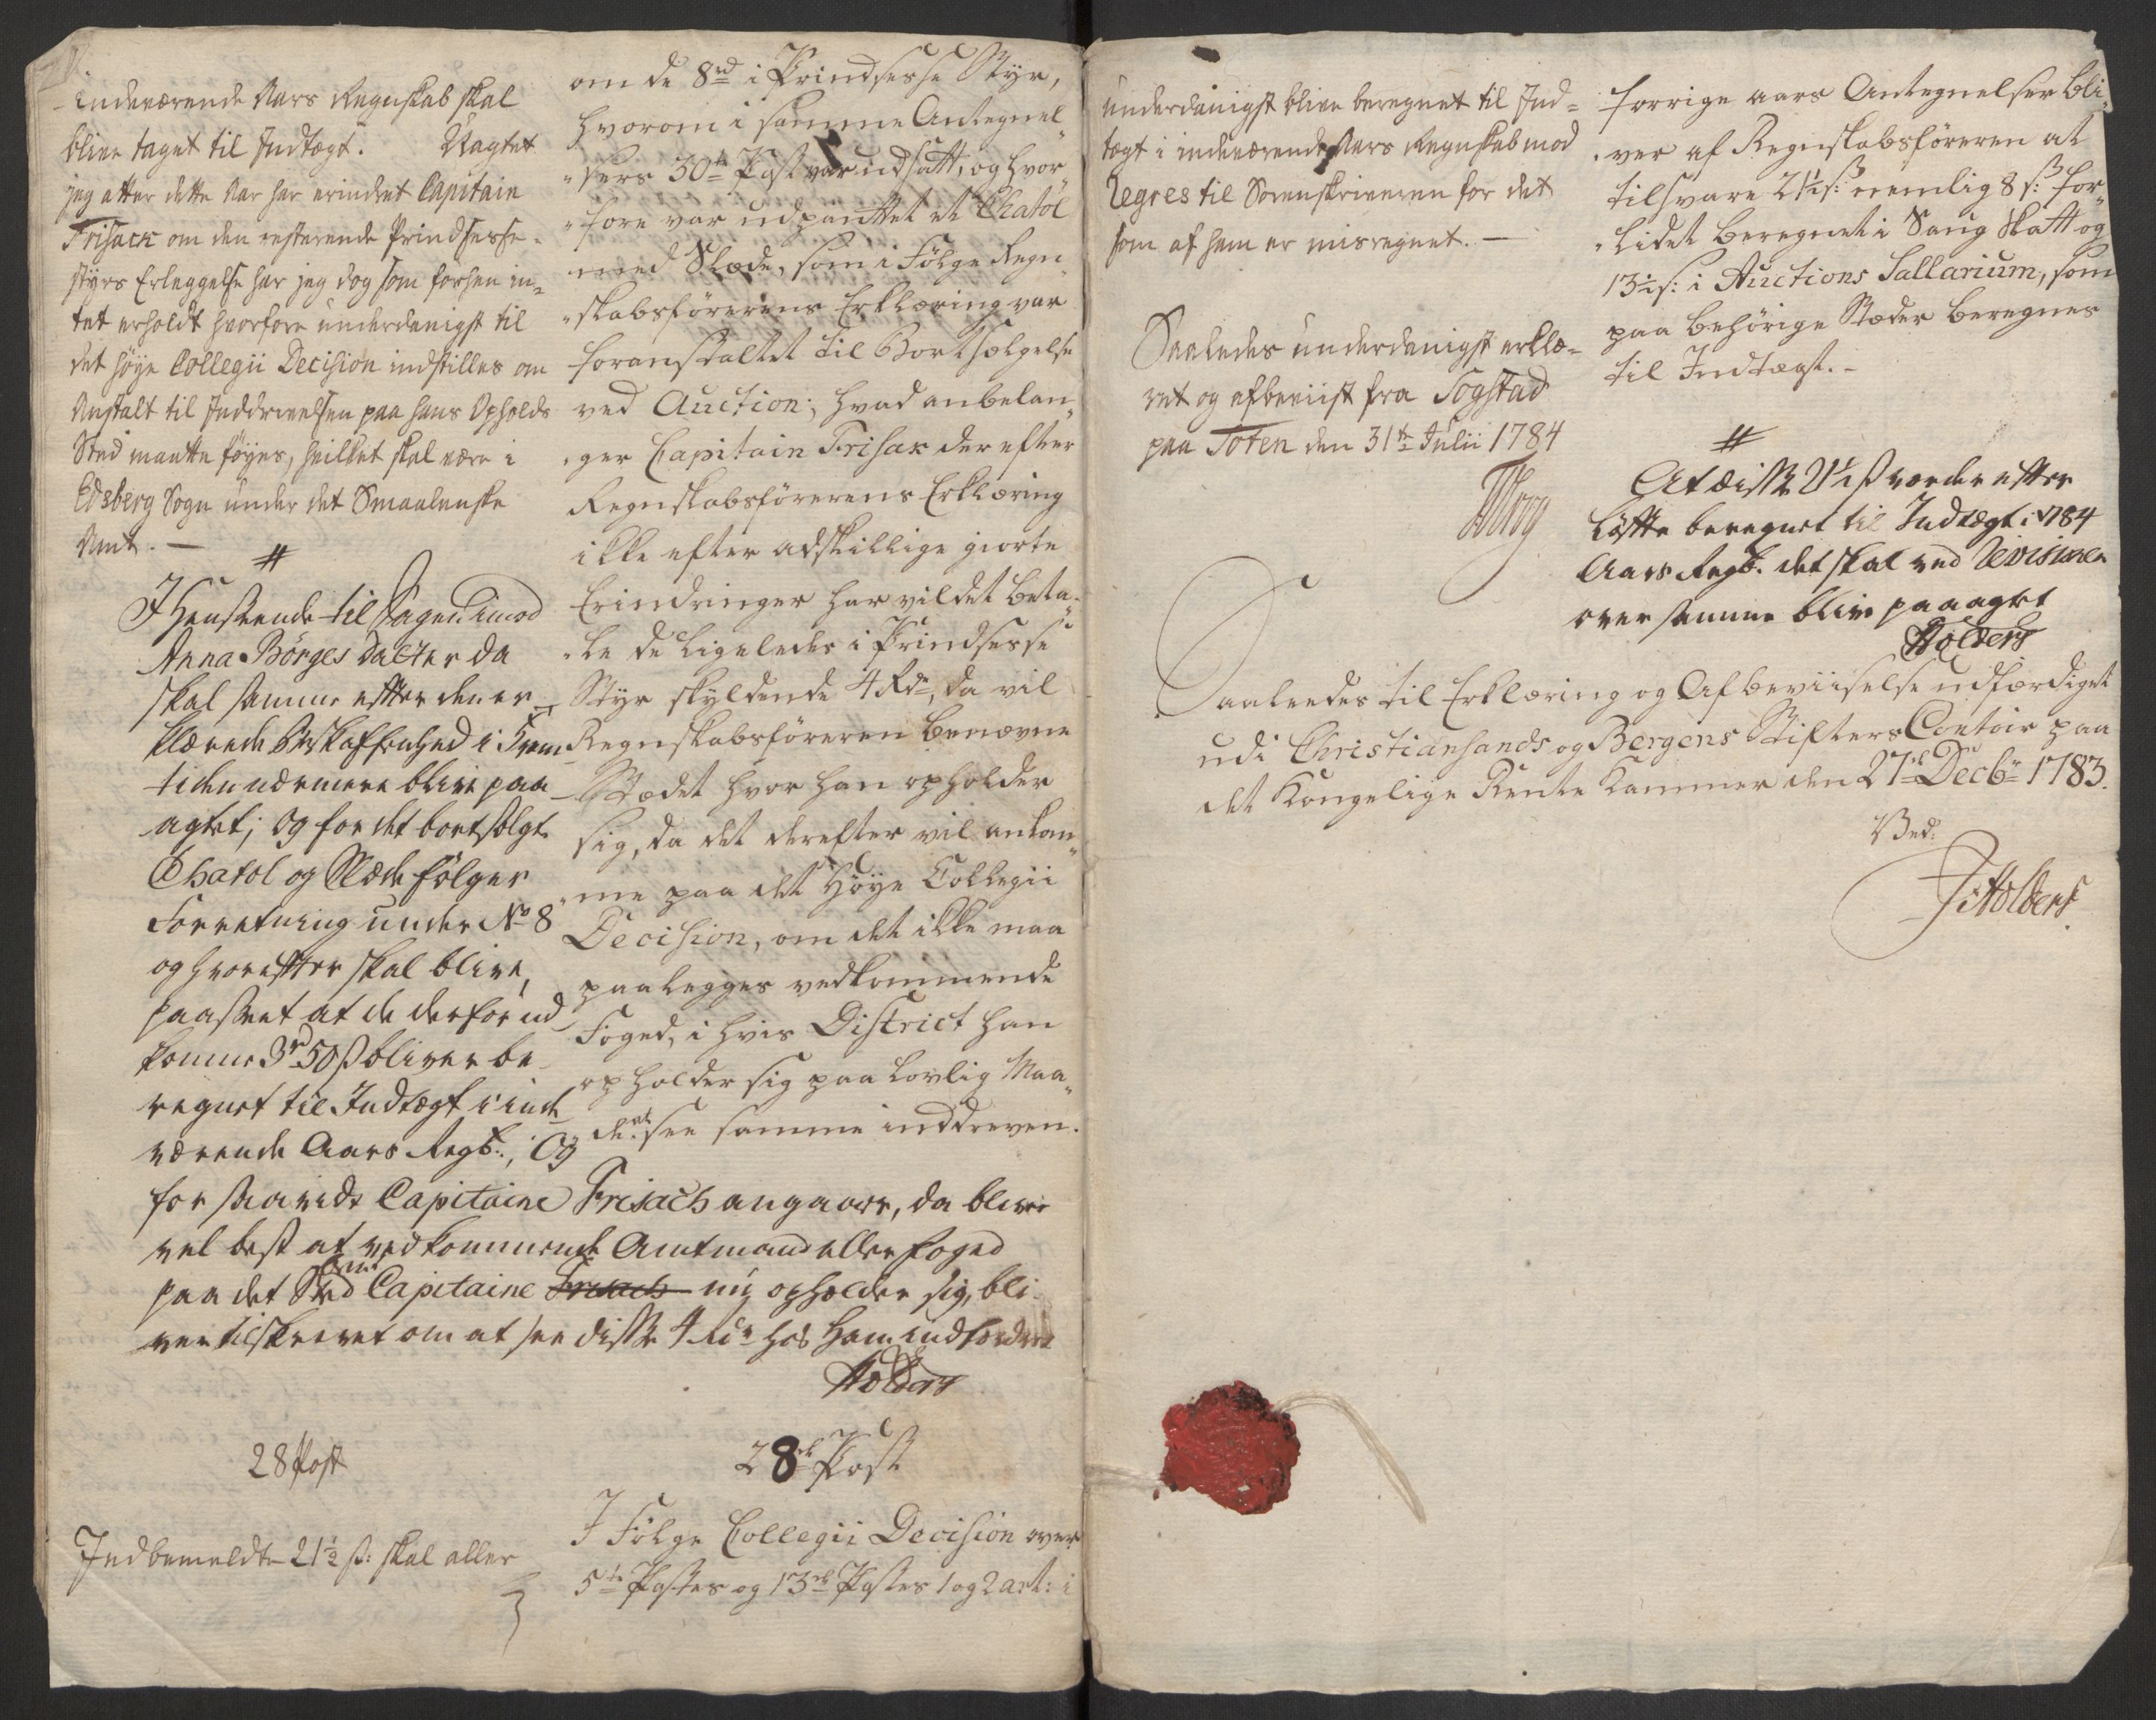 indeværende Aars Regnskab skal
blive taget til Indtægt. Uagtet
jeg atter dette Aar har erindret Capitain
Frisack om den resterende Prindsesse-
styrs Erleggelse har jeg dog som forhen in-
tet erholdt hvorfore underdanigst til
det høye Collegii Decision indstilles om
Anstalt til Inddrivelsen paa hans Opholds
Sted maatte føyes, hvilket skal være i
Edsberg Sogn under det Smaalenske
Amt. —
#
I Henseende til Sagen imod
Anna Børges Datter da
skal samme efter den er-
klærede Beskaffenhed i Frem-
tiden nærmere blive paa-
agtet; og for det bortsolgte
Chatol og Slæde følger
Forretning under No 8
og hvorefter skal blive,
paaseet at de derfor ud-
komne 3rd 50 s bliver be-
regnet til Indtægt i inde-
værende Aars Regsk:, Og
for saavidt Capitaine Frisach angaaer, da bliver
vel best at vedkommende Amtmand eller Foged
paa det Sted Capitaine Frisach nu opholder sig, bli-
ver tilskrevet om at see disse 4 Rdr hos ham indfordret
Holders
28 Post
Indbemeldte 21½ s: skal aller-
om de 8rd i Prindsesse Styr,
hvorom i samme Antegnel-
sers 30te Post var udsatt, og hvor-
fore var udpanttet et Chatol
med Slæde, som i Følge Regn-
skabsførerens Erklæring var
foranstaltet til Bortsælgelse
ved Auction; hvad anbelan-
ger Capitain Frisak der efter
Regnskabsførerens Erklæring
ikke efter adskillige giorte
Erindringer har vildet beta-
le de ligeledes i Prindsesse
Styr skyldende 4 Rdr, da vil
Regnskabsføreren benævne
Stædet hvor han opholder
sig, da det derefter vil ankom-
me paa det Høye Collegii
Decision, om det ikke maa
paalegges vedkommende
Foged, i hvis District han
opholder sig paa lovlig Maa-
de at see samme inddreven.
28de Post
I Følge Collegii Decision over
5te Postes og 13de Postes 1 og 2 art: i
underdanigst blive beregnet til Ind-
tægt i indeværende Aars Regnskab mod
Regres til Sorenskriveren for det
som af ham er misregnet. —
Saaledes underdanigst erklæ-
ret og afbeviist fra Sogstad
paa Toten den 31te Julii 1784
forrige aars Antegnelser bli-
ver af Regnskabsføreren at
tilsvare 21½ s: nemlig 8 s: for-
lidet beregnet i Saug Skatt og
13½ s: i Auctions Sallarium, som
paa behörige Stæder beregnes
til Indtægt. -
#
At disse 21½ s vorder efter
Løfte beregnet til Indtægt i 1784
Aars Regsk: det skal ved Revisionen
over samme blive paaagtet
Holders
Saaledes til Erklæring og Afbeviiselse udfærdiget
udi Christiansands og Bergens Stifters Contoir paa
det Kongelige Rente Kammer den 27de Decbr 1783.
Ved:
Holders